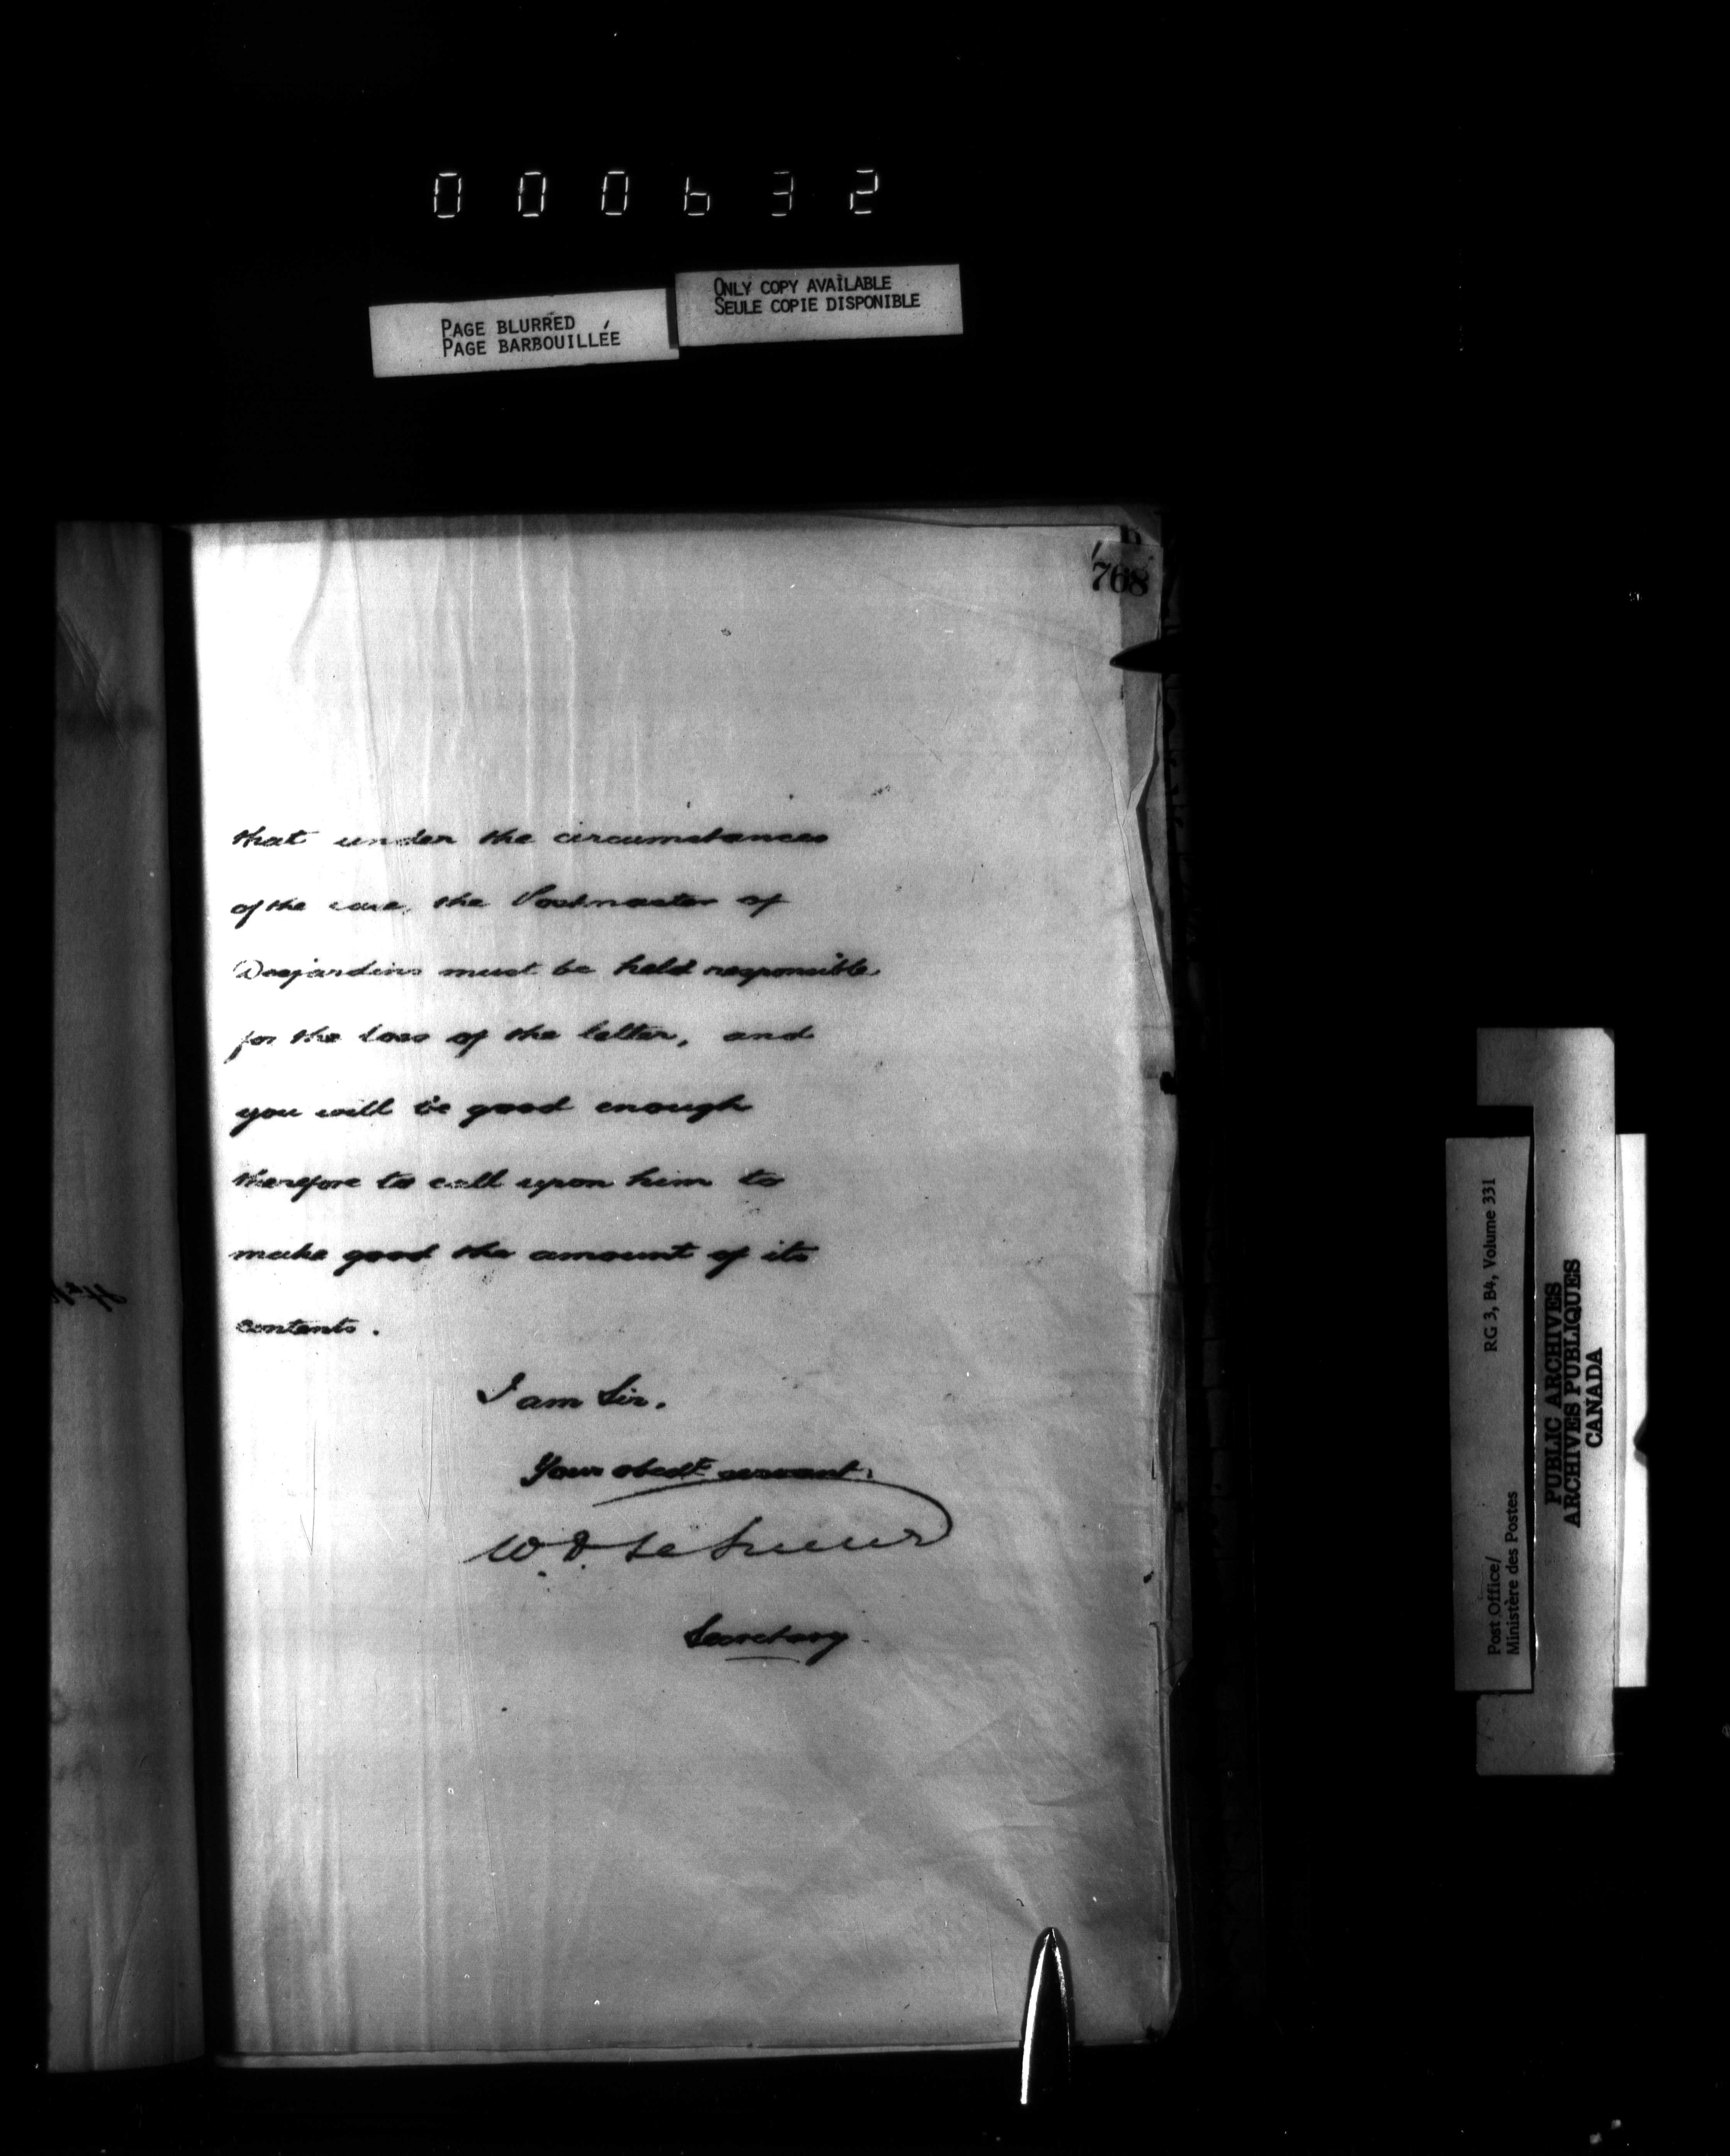 000632
PAGE BLURRED
PAGE BARBOUILLÉE
ONLY COPY AVAILABLE
SEULE COPIE DISPONIBLE
768
that under the circumstances
of the case, the Postmaster of
Desjardins must be held responsible
for the loss of the letter, and
you will be good enough
therefore to call upon him to
make good the amount of its
contents.
I am Sir,
Your obedt servant,
W. D. Le Sueur
Secretary
Post Office/
Ministère des Postes
RG 3, B4, Volume 331
PUBLIC ARCHIVES
ARCHIVES PUBLIQUES
CANADA